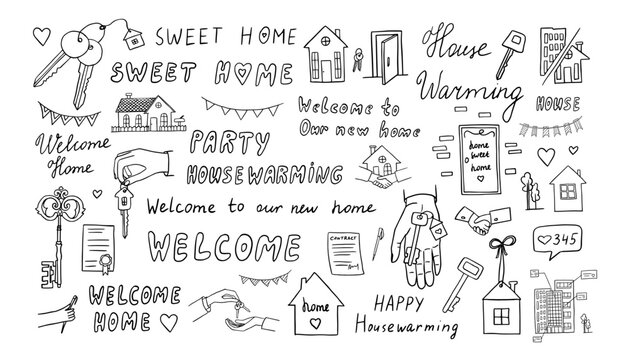 SWEET HOME
SWEET HOME
House
Warming
HOUSE
Welcome to
Our new home
Welcome
Home
PARTY
HOUSEWARMING
home
sweet
home
Welcome to our new home
WELCOME
CONTRACT
345
WELCOME
HOME
home
HAPPY
Housewarming